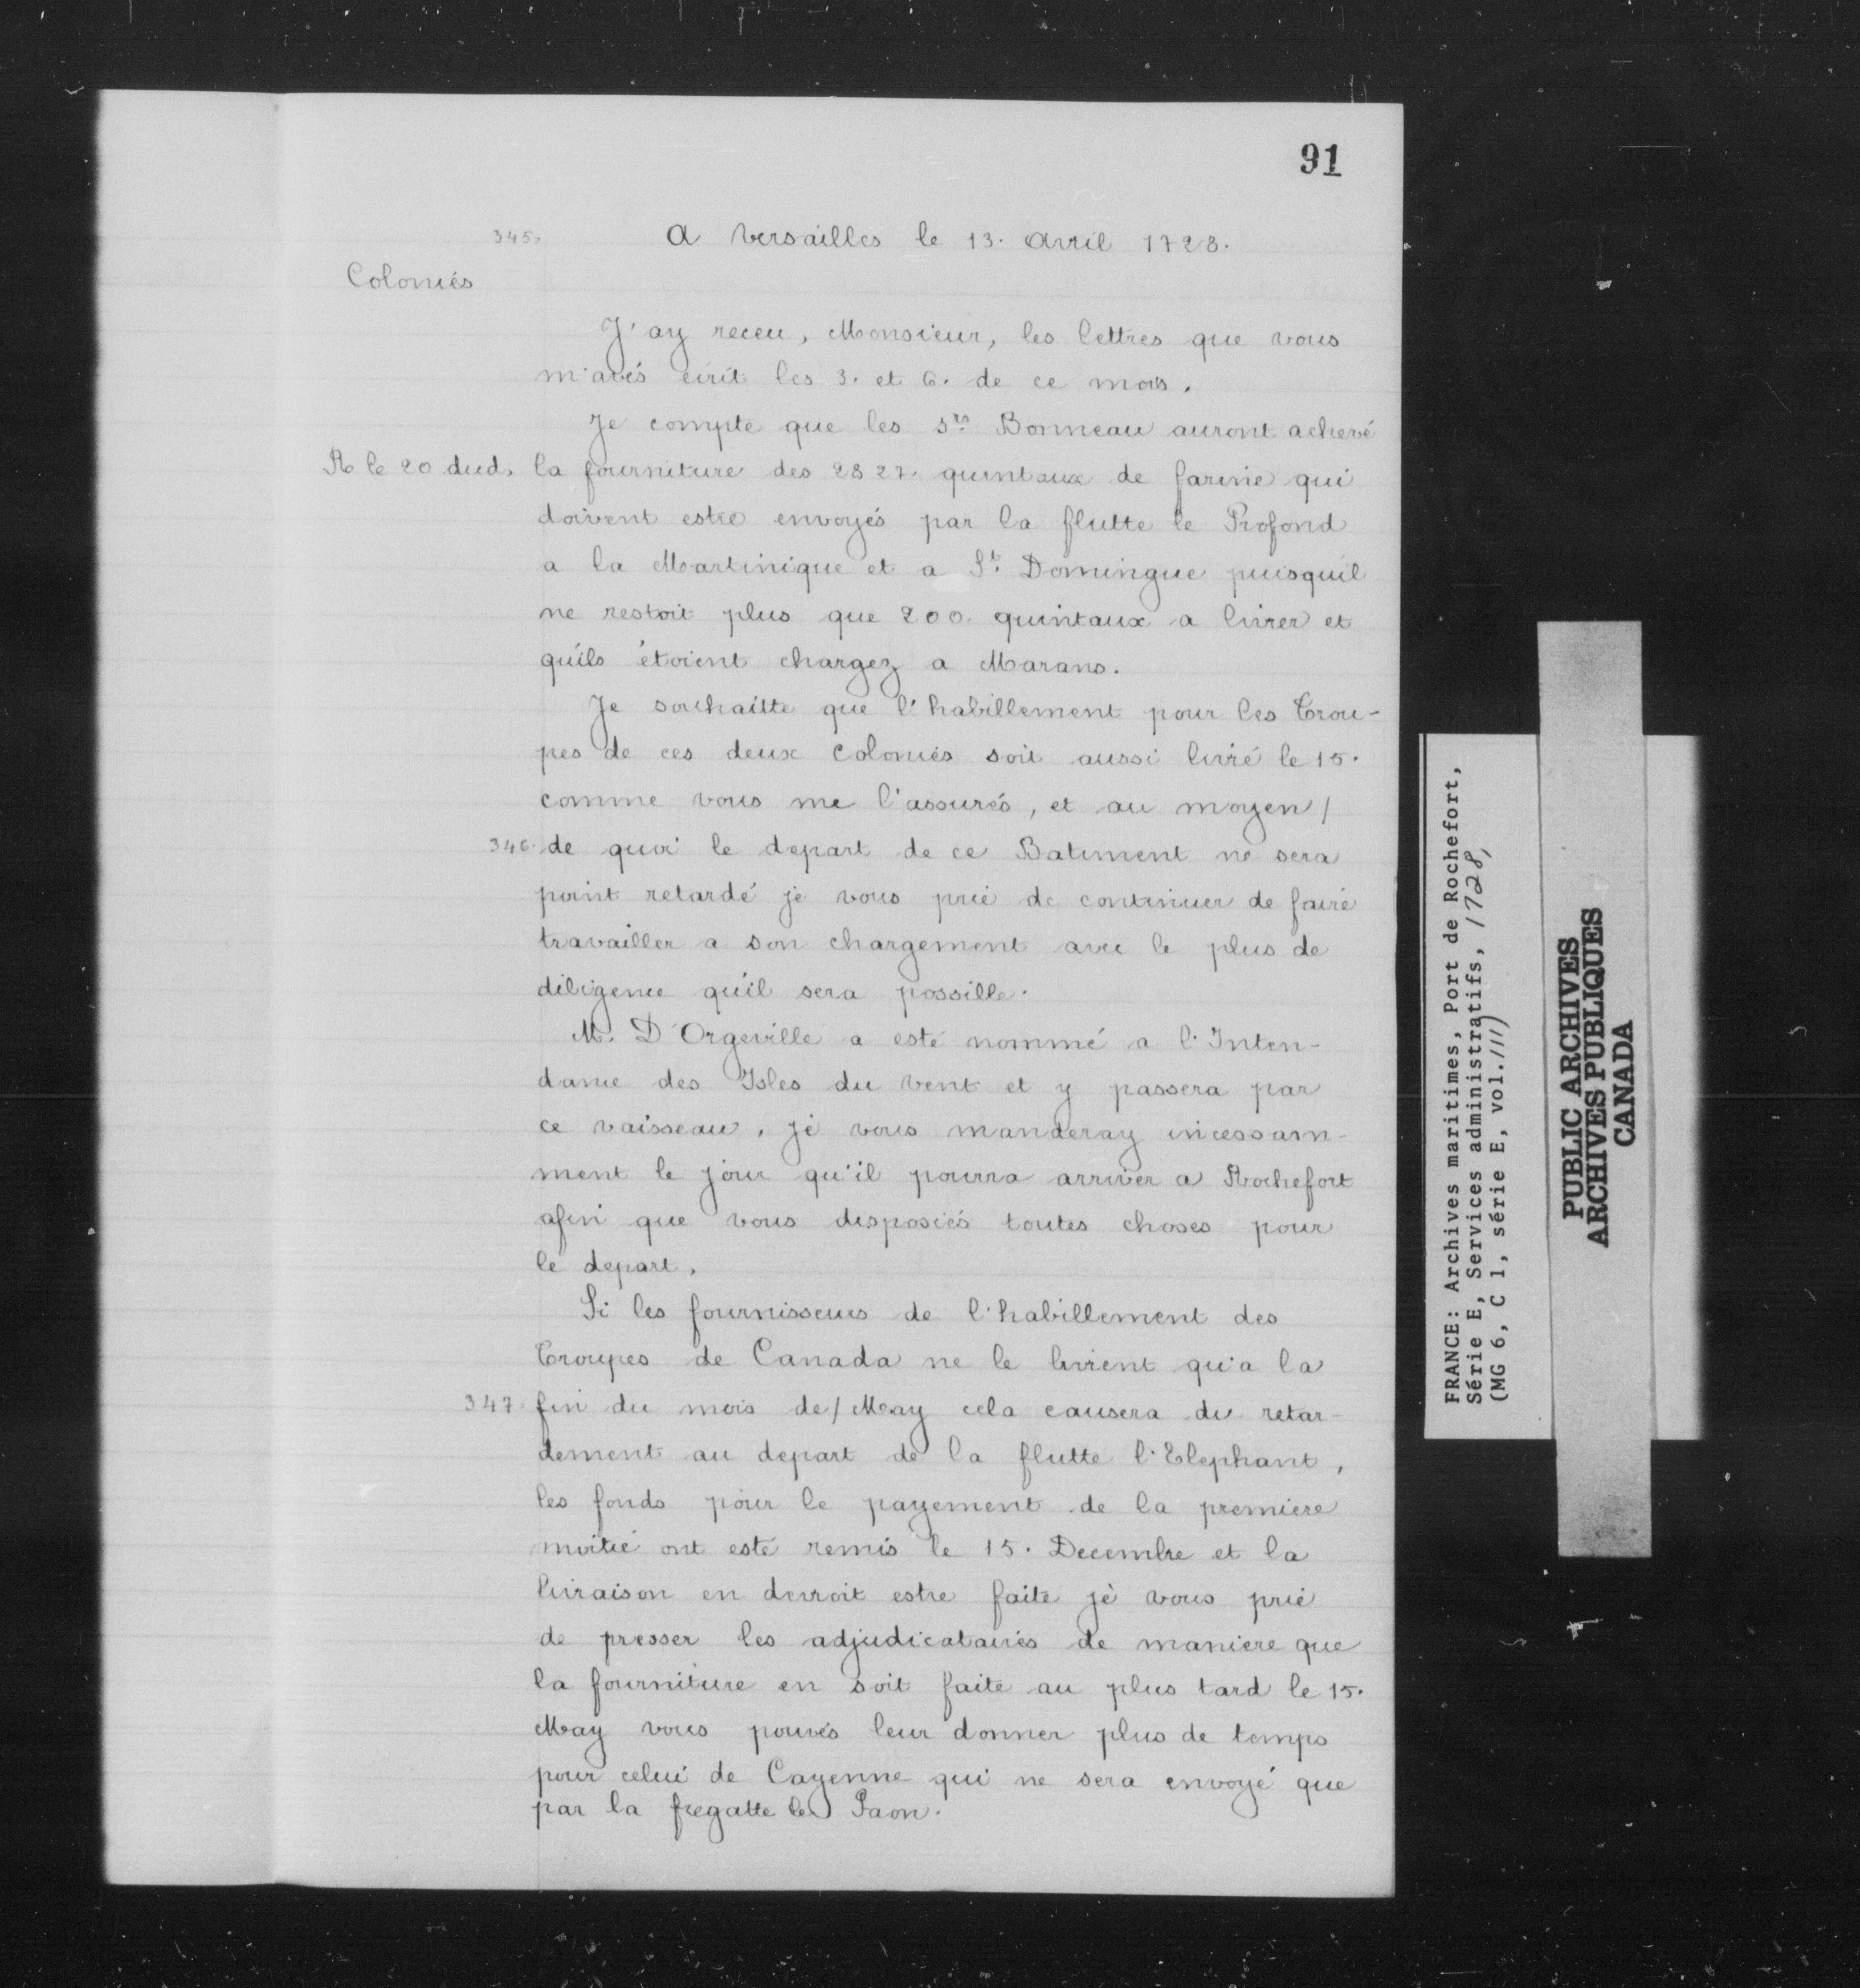 91
345.
A Versailles le 13. Avril 1728.
Colonies
J'ay receu, Monsieur, les lettres que vous
m'avés écrit les 3. et 6. de ce mois.
Je compte que les Srs Bonneau auront achevé
R le 20 dud. la fourniture des 2827. quintaux de farine qui
doivent estre envoyés par la flutte le Profond
a la Martinique et a St. Domingue puisquil
ne restoit plus que 200. quintaux a livrer et
qu'ils étoient chargez a Marans.
Je souhaitte que l'habillement pour les Trou-
pes de ces deux Colonies soit aussi livré le 15.
comme vous me l'assurés, et au moyen /
346. de quoi le depart de ce Batiment ne sera
point retardé je vous prie de continuer de faire
travailler a son chargement avec le plus de
diligence qu'il sera possille.
M. D'Orgeville a esté nommé a l'Inten-
dance des Isles du vent et y passera par
ce vaisseau, je vous manderay incessam-
ment le jour qu'il pourra arriver a Rochefort
afin que vous disposiés toutes choses pour
le depart.
Si les fournisseurs de l'habillement des
Troupes de Canada ne le livrent qu'a la
347. fin du mois de / May cela causera du retar-
dement au depart de la flutte l'Elephant,
les fonds pour le payement de la premiere
moitié ont esté remis le 15. Decembre et la
livraison en devroit estre faite je vous prie
de presser les adjudicataires de maniere que
la fourniture en soit faite au plus tard le 15.
May vous pouvés leur donner plus de temps
pour celui de Cayenne qui ne sera envoyé que
par la fregatte le Paon.
FRANCE: Archives maritimes, Port de Rochefort,
Série E, Services administratifs, 1728,
(MG 6, C 1, série E, vol.111)
PUBLIC ARCHIVES
ARCHIVES PUBLIQUES
CANADA